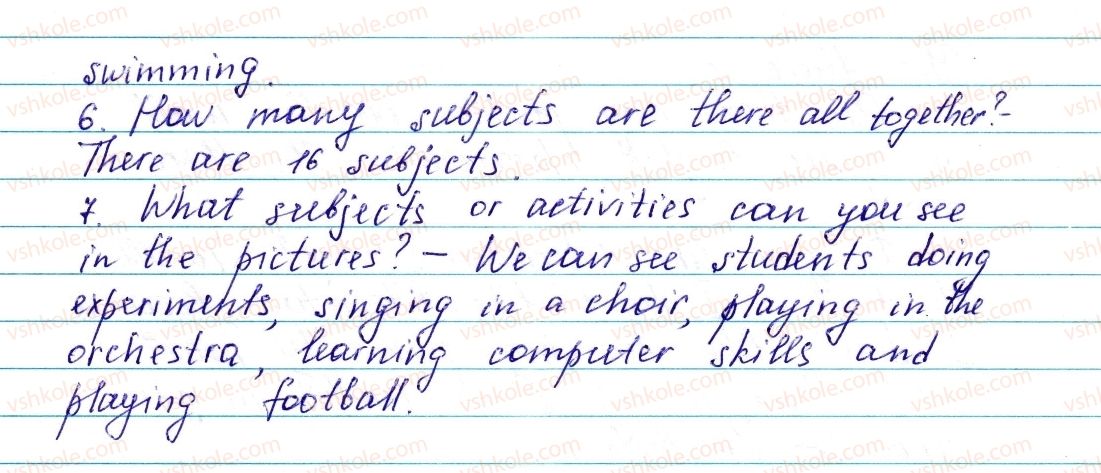 swimming.
6. How many subjects are there all together? -
There are 16 subjects.
7. What subjects or activities can you see
in the pictures? - We can see students doing
experiments, singing in a choir, playing in the
orchestra, learning computer skills and
playing football.